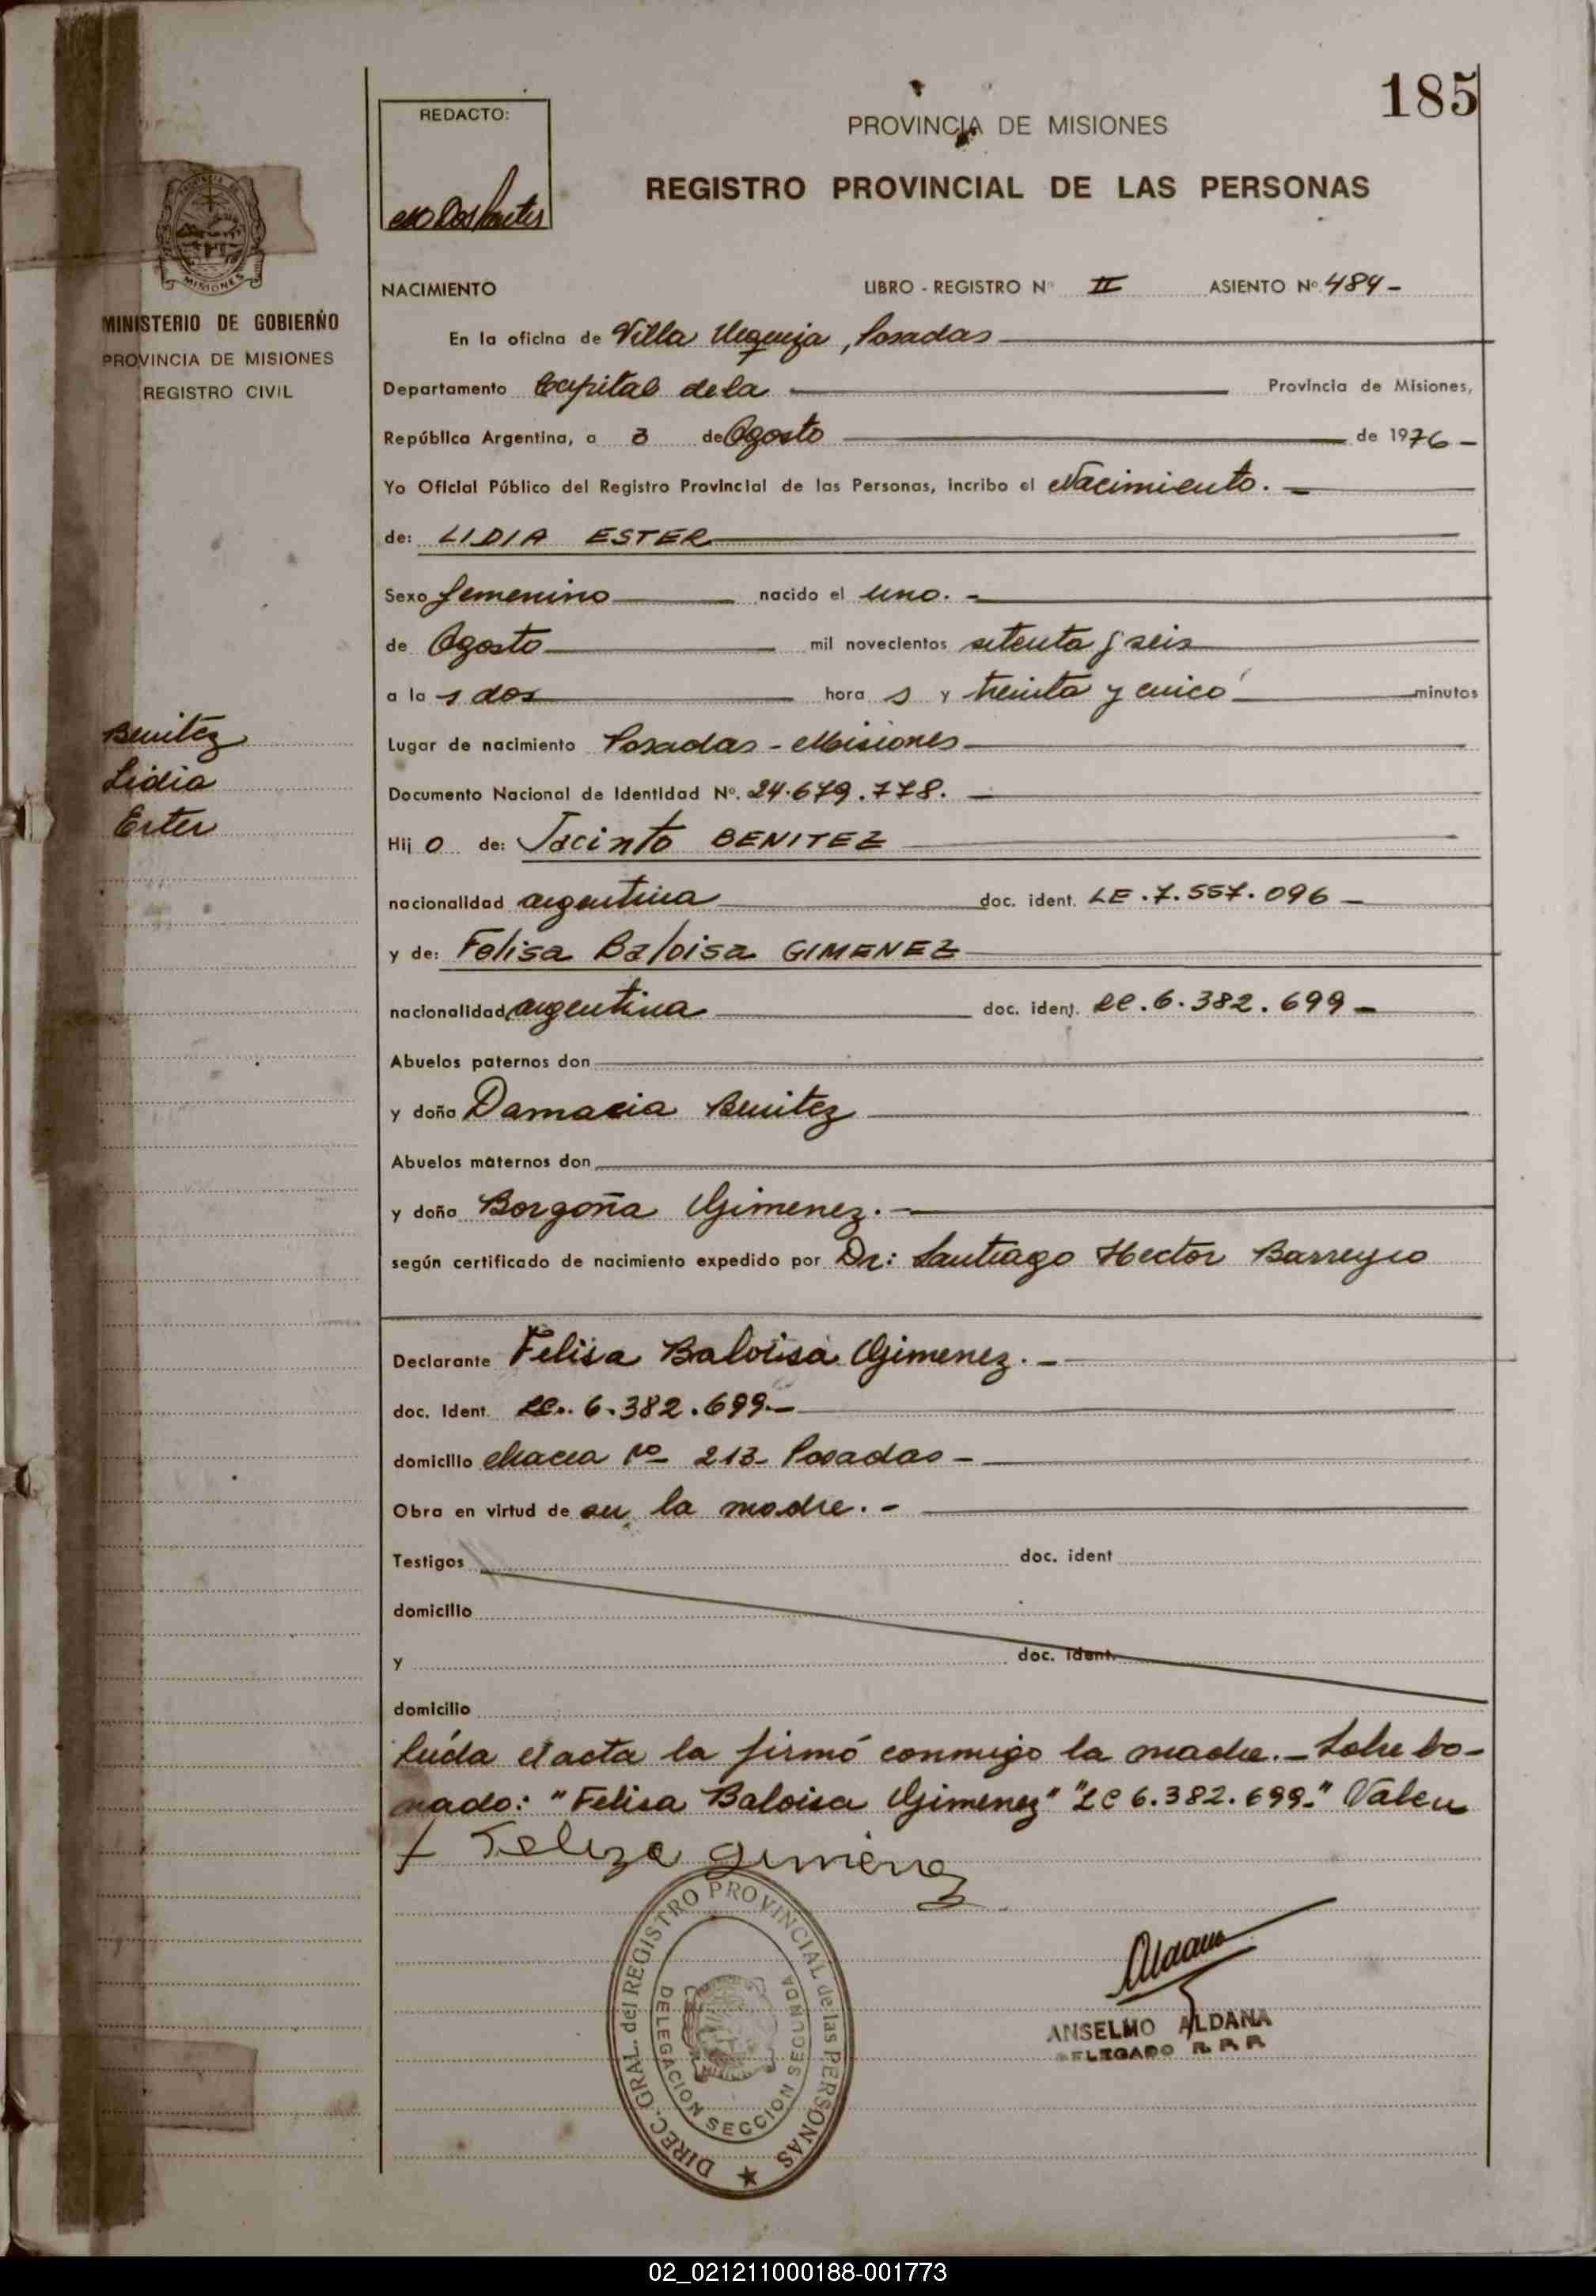 185
REDACTO:
PROVINCIA DE MISIONES
REGISTRO PROVINCIAL DE LAS PERSONAS
MISIONES
MINISTERIO DE GOBIERNO
PROVINCIA DE MISIONES
REGISTRO CIVIL
NACIMIENTO LIBRO - REGISTRO Nº II ASIENTO Nº 484-
En la oficina de Villa Urquiza, Posadas
Departamento Capital de la Provincia de Misiones,
República Argentina, a 3 de Agosto de 1976-
Yo Oficial Público del Registro Provincial de las Personas, incribo el Nacimiento.-
de: LIDIA ESTER
Sexo femenino nacido el uno.-
de Agosto mil novecientos setenta y seis
a la s dos hora s y treinta y cinco minutos
Benitez
Lidia
Ester
Lugar de nacimiento Posadas - Misiones
Documento Nacional de Identidad Nº. 24.679.778.
Hij o de: Jacinto BENITEZ
nacionalidad argentina doc. ident. LE.7.557.096-
y de: Felisa Baloisa GIMENEZ
nacionalidad argentina doc. ident. LC.6.382.699-
Abuelos paternos don
y doña Damacia Benitez
Abuelos maternos don
y doña Borgoña Gimenez.-
según certificado de nacimiento expedido por Dr: Santiago Hector Barreyro
Declarante Felisa Baloisa Gimenez.-
doc. Ident. LC. 6.382.699.-
domicilio chacra Nº 213- Posadas-
Obra en virtud de ser la madre.-
Testigos doc. ident
domicilio
y doc. ident.
domicilio
Leída el acta la firmó conmigo la madre.- Sobre bo-
rrado: "Felisa Baloisa Gimenez" "LC 6.382.699-" Valen
Feliza Gimenez
DIREC. GRAL. del REGISTRO PROVINCIAL de las PERSONAS
DELEGACION SECCION SEGUNDA
Aldana
ANSELMO ALDANA
DELEGADO R. P. P.
02_021211000188-001773